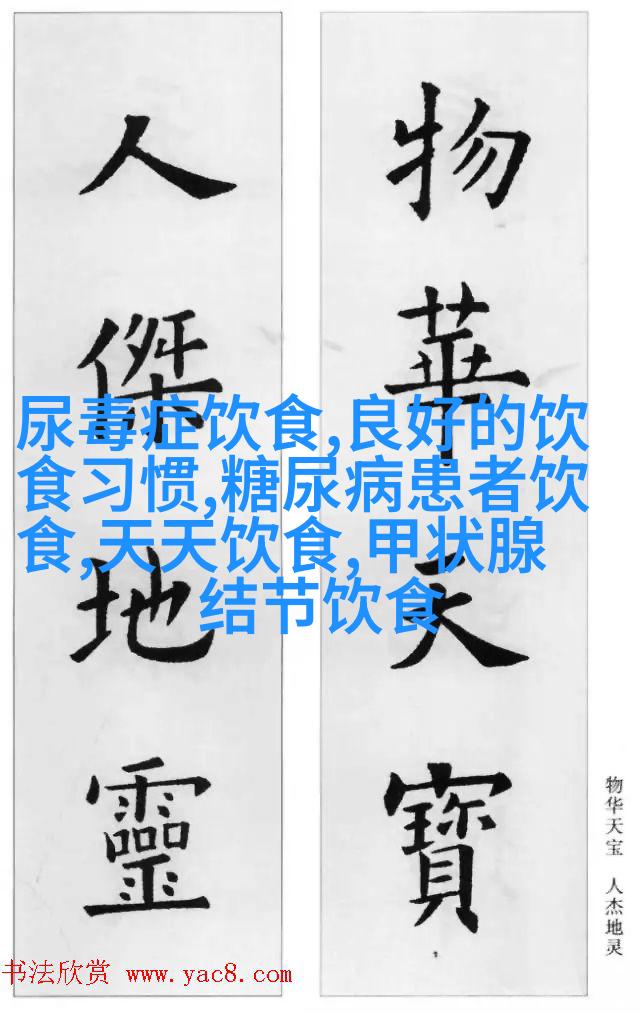 物華天寶
人傑地靈
尿毒症饮食,良好的饮
食习惯,糖尿病患者饮
食,天天饮食,甲状腺
结节饮食
物华天宝 人杰地灵
书法欣赏 www.yac8.com